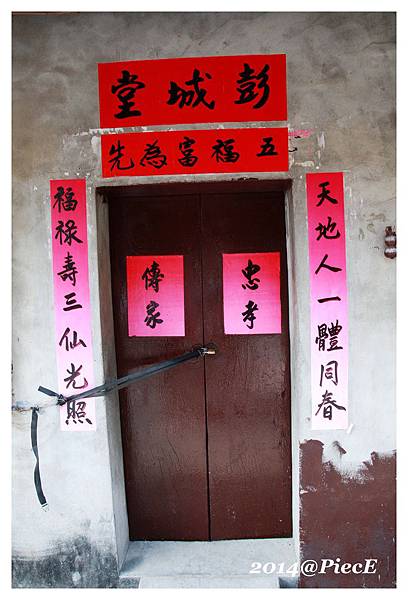 彭城堂
五福富為先
天地人一體同春
忠孝
傳家
福祿壽三仙光照
2014@PiecE